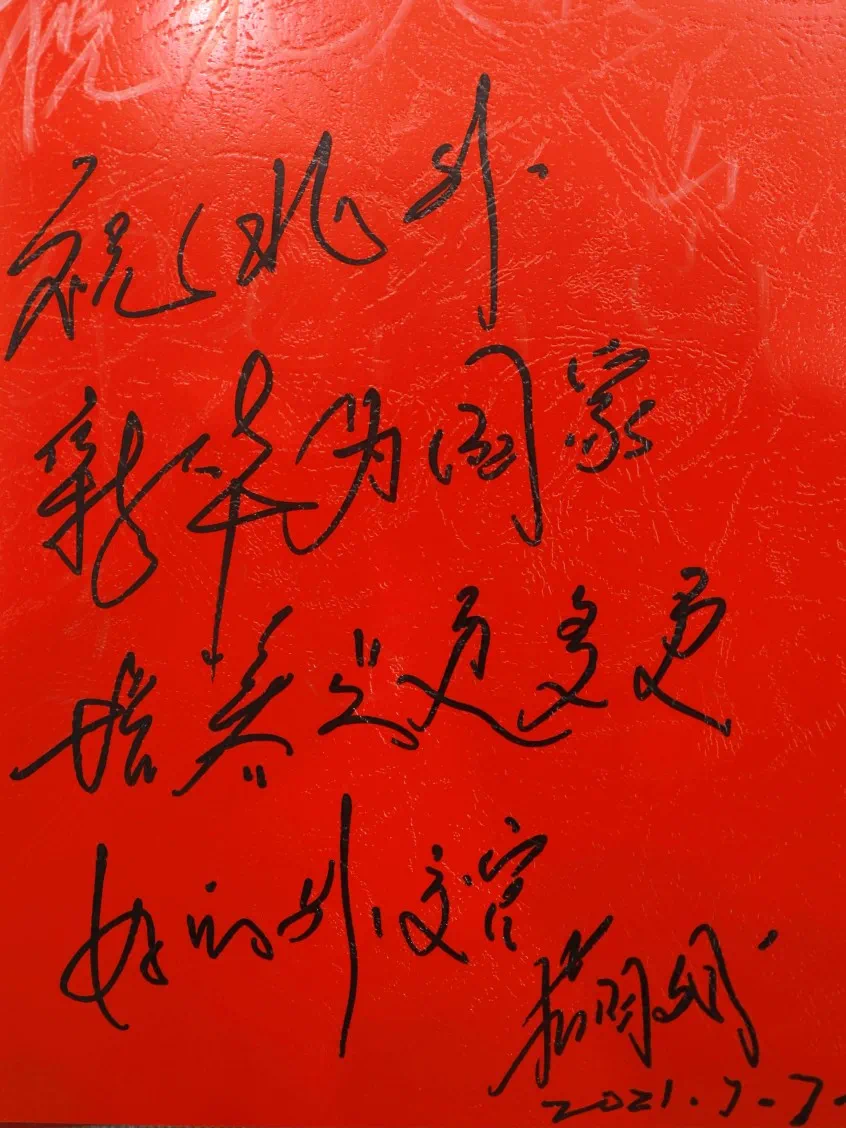 祝北外
新华为国家
培养出更多更
好的外交官
2021.7.7.